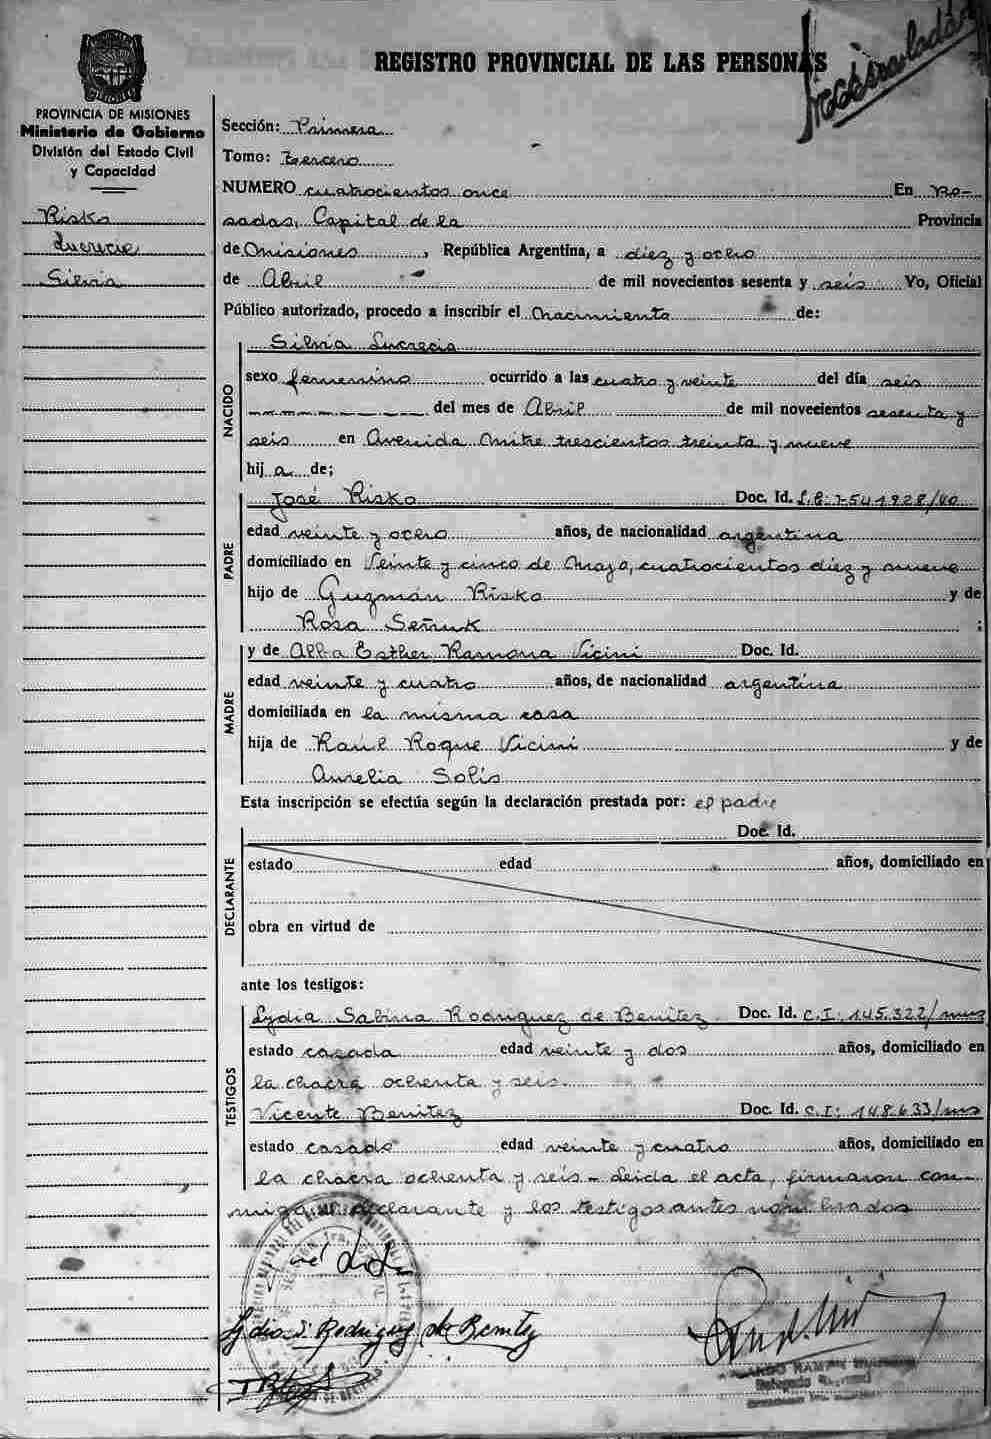 REGISTRO PROVINCIAL DE LAS PERSONAS
PROVINCIA DE MISIONES
Ministerio de Gobierno
División del Estado Civil
y Capacidad
Risko
Lucrecia
Silvia
Sección: Primera
Tomo: tercero
NUMERO cuatrocientos once En Po-
sadas, Capital de la Provincia
de Misiones, República Argentina, a diez y ocho
de Abril de mil novecientos sesenta y seis Yo, Oficial
Público autorizado, procedo a inscribir el nacimiento de:
NACIDO
Silvia Lucrecia
sexo femenino ocurrido a las cuatro y veinte del día seis
del mes de Abril de mil novecientos sesenta y
seis en Avenida Mitre trescientos treinta y nueve
hij a de;
PADRE
José Risko Doc. Id. L.E: 7.541928/40
edad veinte y ocho años, de nacionalidad argentina
domiciliado en Veinte y cinco de Mayo, cuatrocientos diez y nueve
hijo de Guzmán Risko y de
Rosa Señuk ;
MADRE
y de Alba Esther Ramona Vicini Doc. Id.
edad veinte y cuatro años, de nacionalidad argentina
domiciliada en la misma casa
hija de Raúl Roque Vicini y de
Aurelia Solís
Esta inscripción se efectúa según la declaración prestada por: el padre
DECLARANTE
Doc. Id.
estado edad años, domiciliado en
obra en virtud de
ante los testigos:
TESTIGOS
Lydia Sabina Rodriguez de Benitez Doc. Id. C.I: 145.322/mns
estado casada edad veinte y dos años, domiciliado en
la chacra ochenta y seis.
Vicente Benitez Doc. Id. C.I: 148.633/mns
estado casado edad veinte y cuatro años, domiciliado en
la chacra ochenta y seis - Leida el acta, firmaron con-
migo, declarante y los testigos antes nombrados
Lydia S. Rodriguez de Benitez